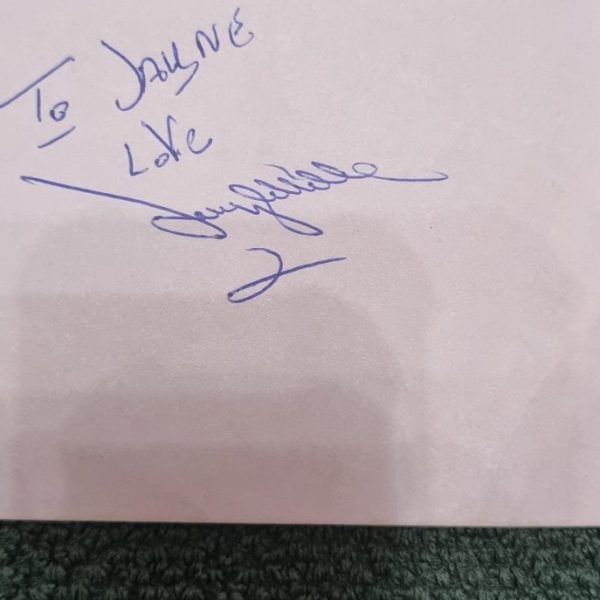 To JAYNE
Love
2